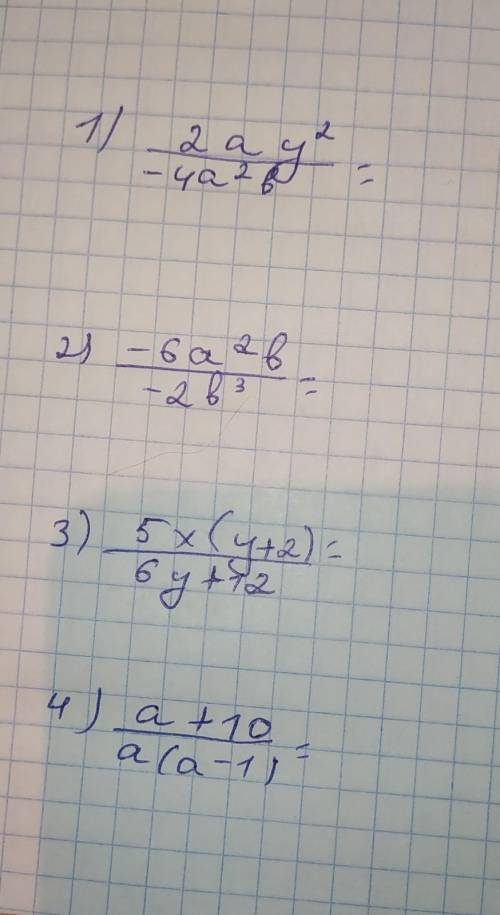 1) 2ay² / -4a²b =
2) -6a²b / -2b³ =
3) 5x(y+2) / 6y+12 =
4) a+10 / a(a-1) =